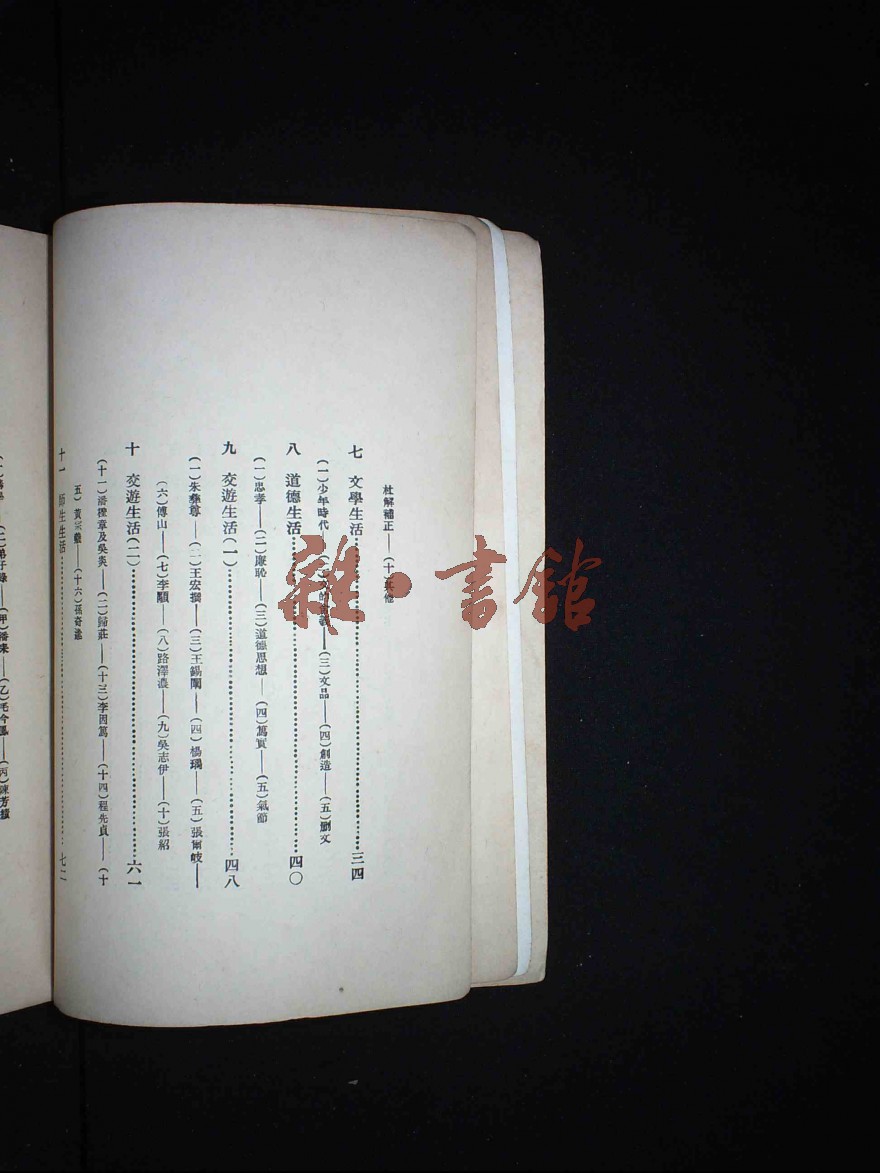 杜解補正——(十
七 文學生活……三四
(一)少年時代——(三)文品——(四)創造——(五)劄文
八 道德生活……四〇
(一)忠孝——(二)廉恥——(三)道德思想——(四)篤實——(五)氣節
九 交遊生活(一)……四八
(一)朱彝尊——(二)王宏撰——(三)王錫闡——(四)楊瑀——(五)張爾岐——
(六)傅山——(七)李顒——(八)路澤濃——(九)吳志伊——(十)張紹
十 交遊生活(二)……六一
(十一)潘檉章及吳炎——(十二)歸莊——(十三)李因篤——(十四)程先貞——(十
五)黃宗羲——(十六)孫奇逢
十一 師生生活……七二
(二)弟子錄——(甲)潘耒——(乙)毛今鳳——(丙)陳芳績
雜·書館